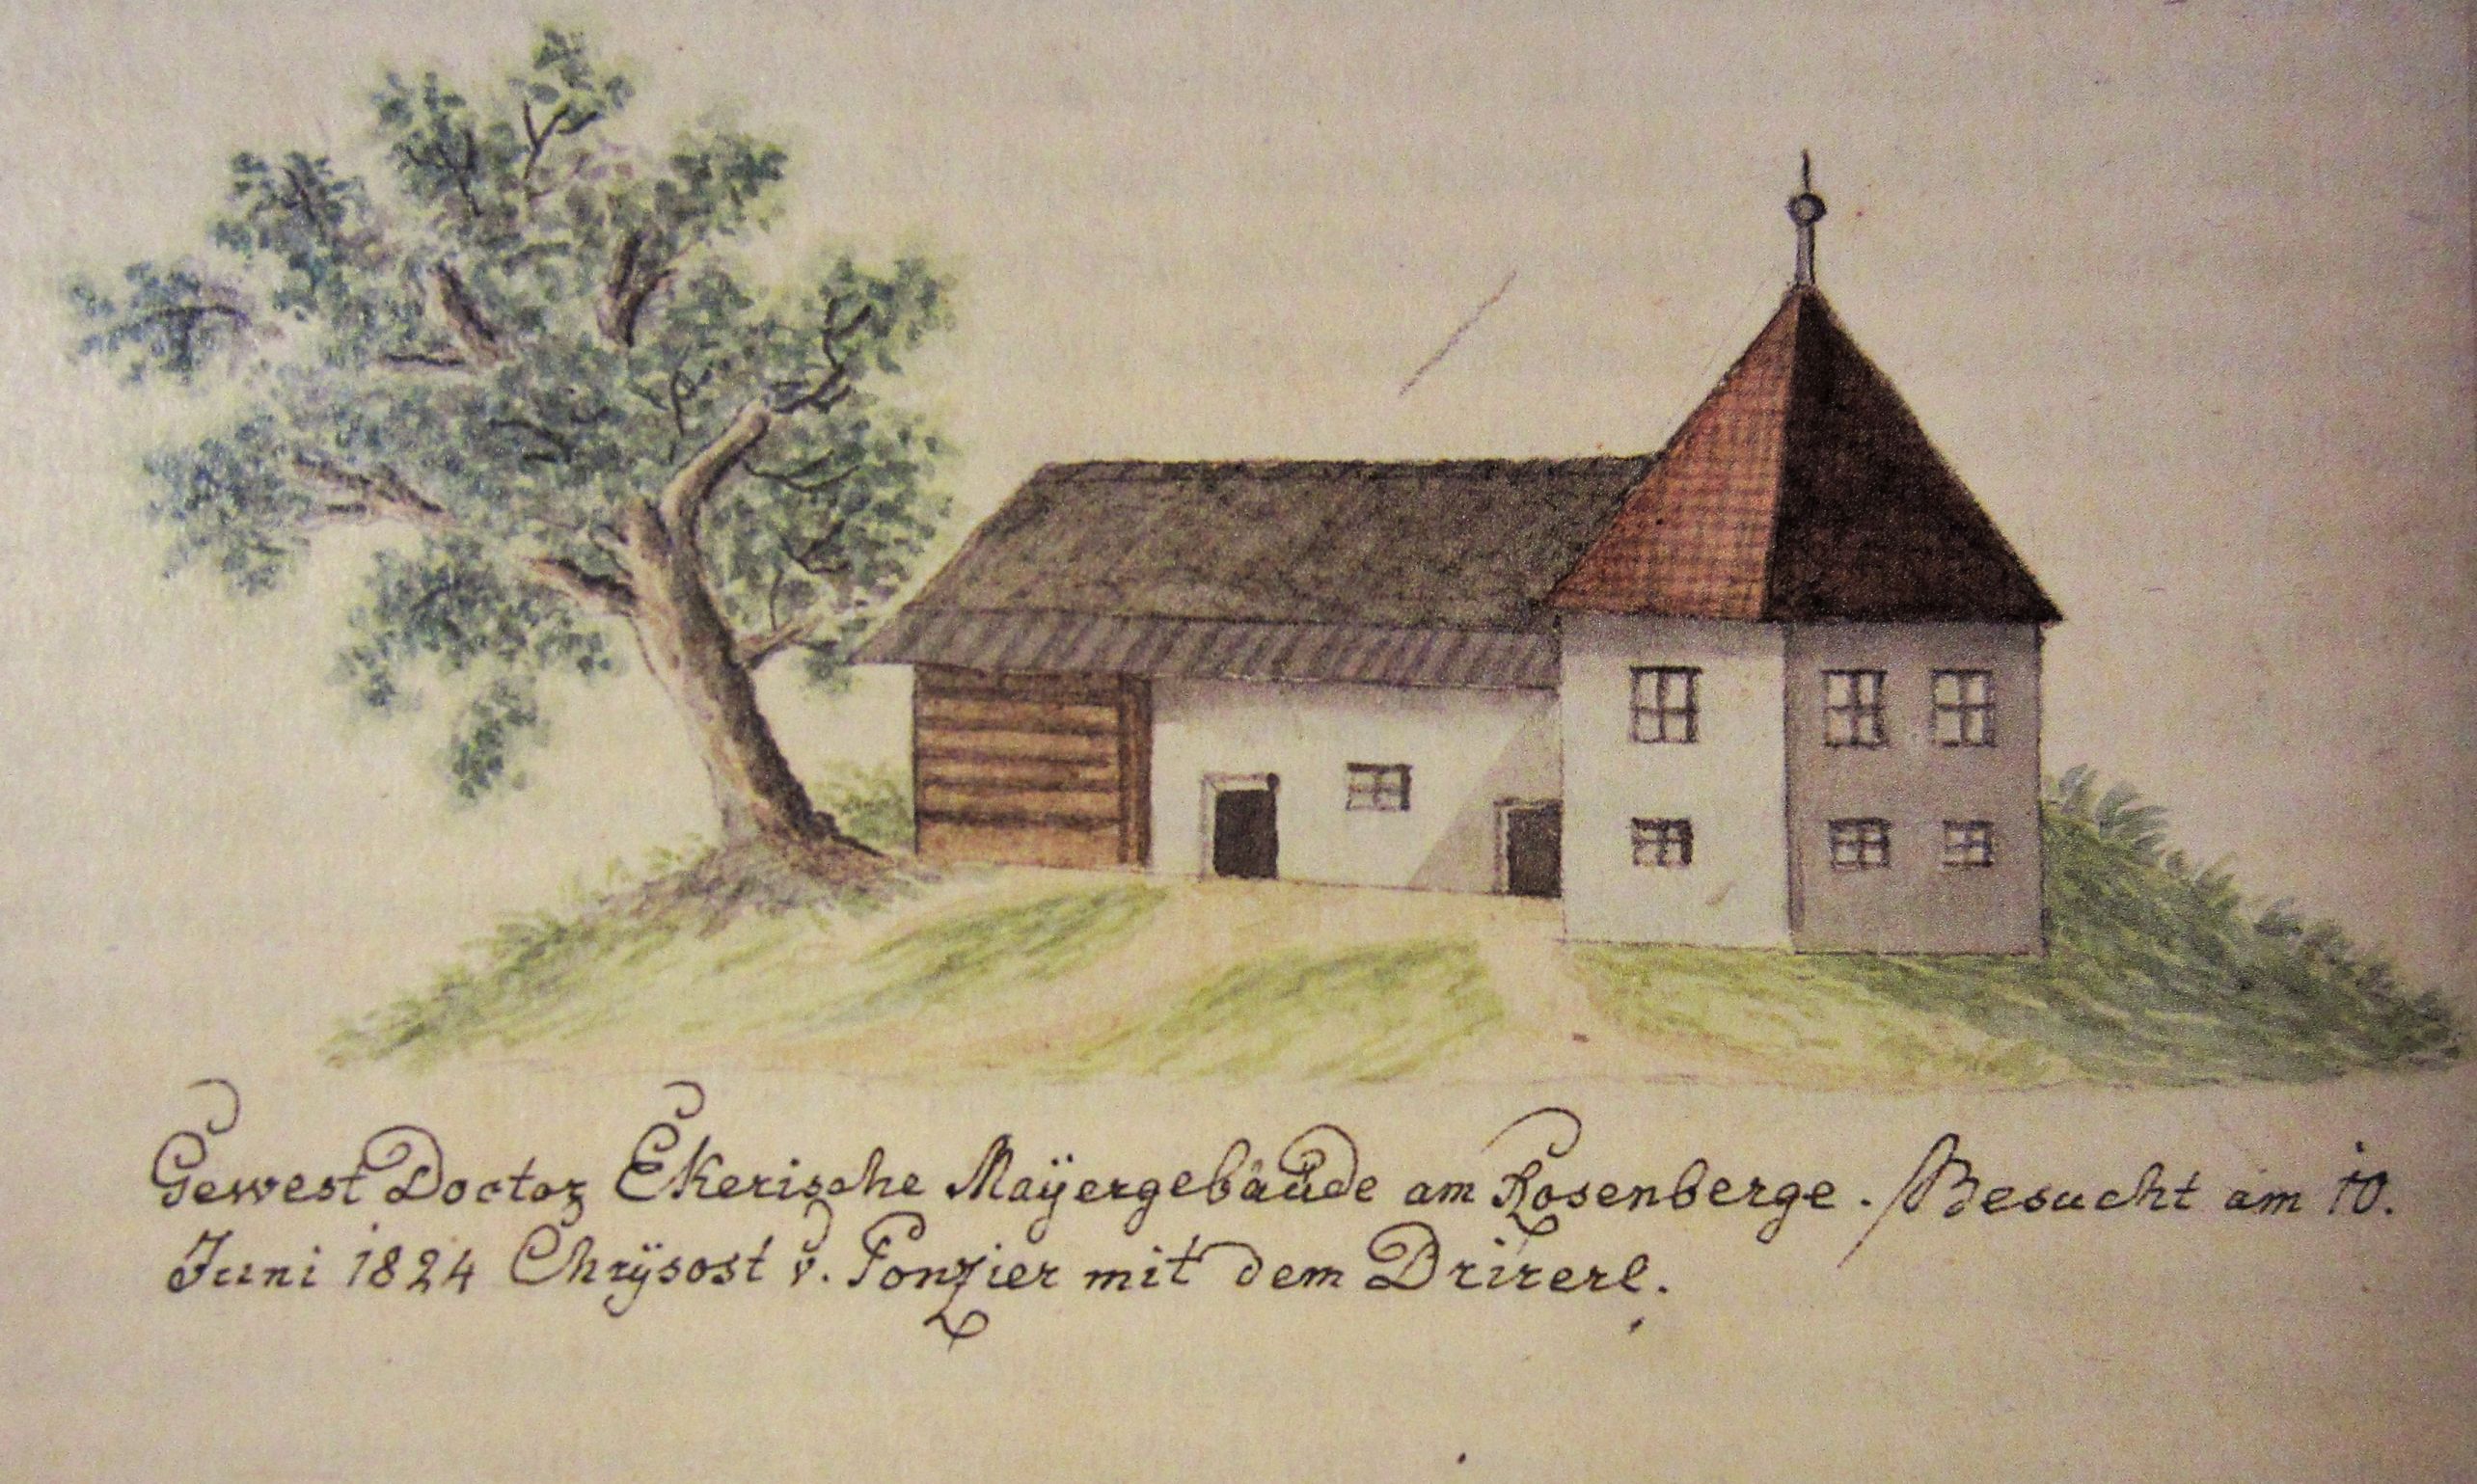 Gewest Doctor Ekerische Maÿergebäude am Rosenberge. Besucht am 10.
Juni 1824 Chrÿsost v. mit dem